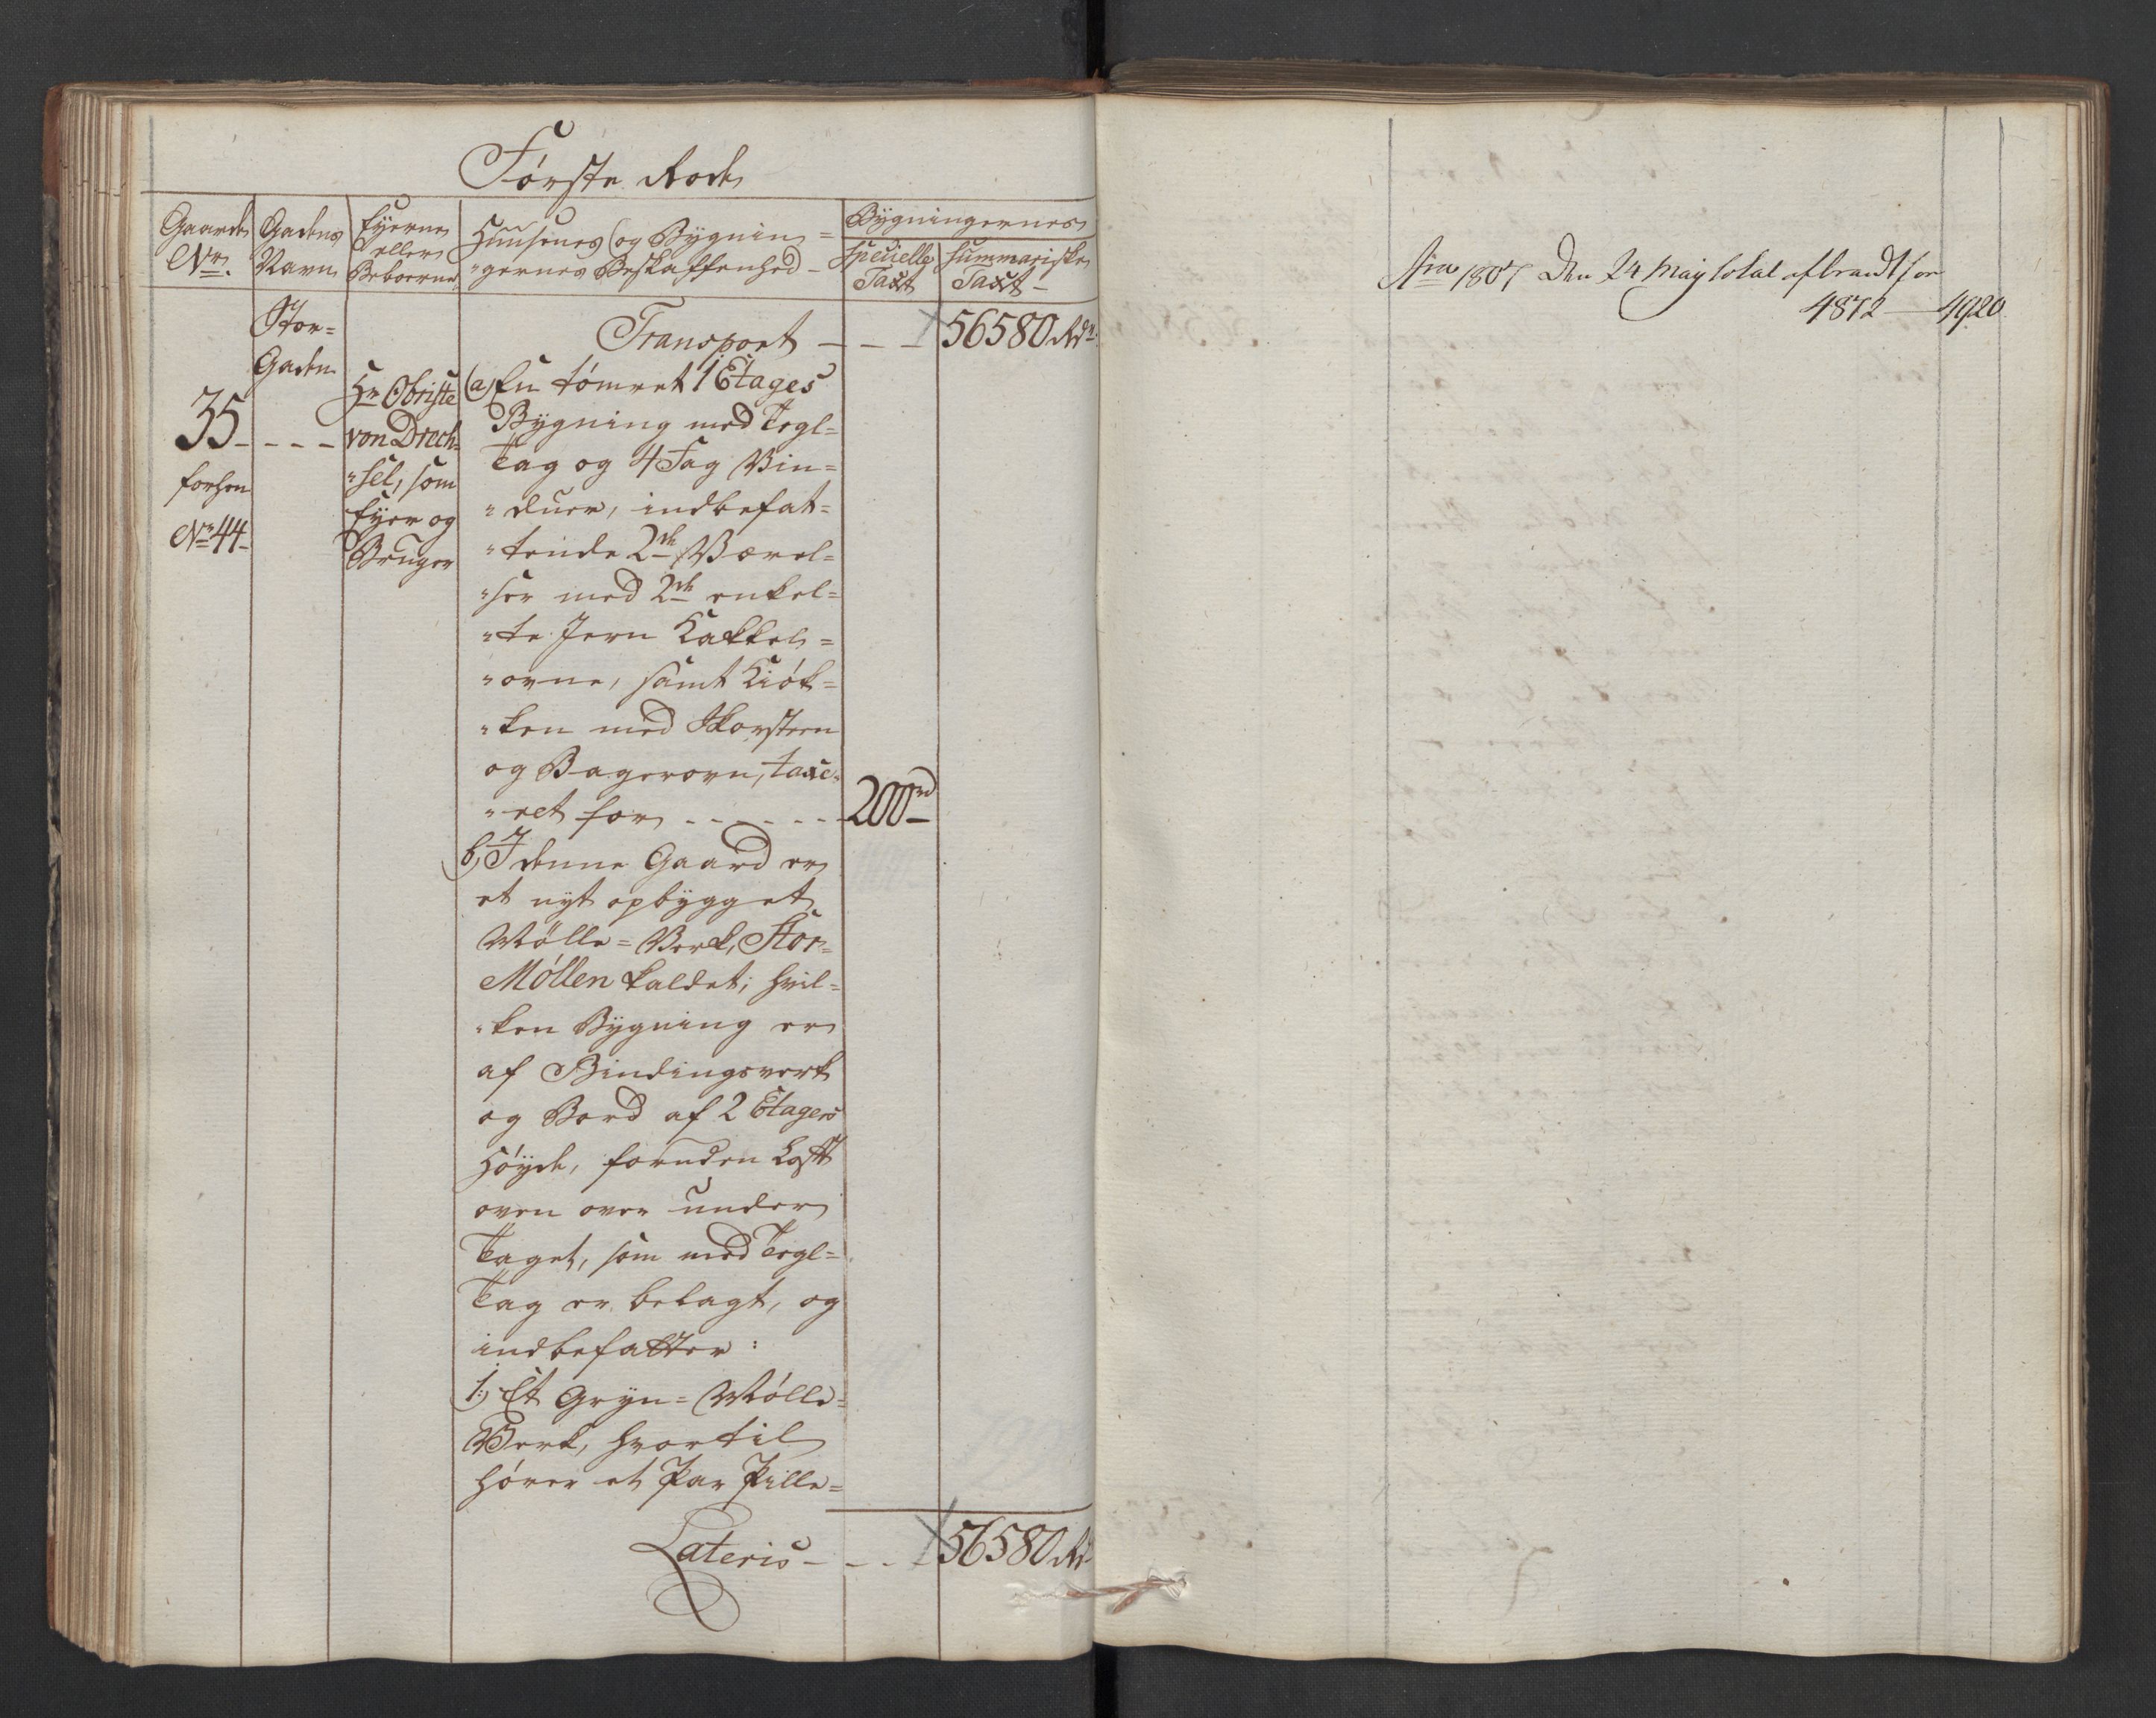 Første Rode
Gaardens
No.
Gadens
Navn
Eyerne
eller
Beboerne
Huusenes og Bygnin=
"gernes Beskaffenhed -
Bygningernes
Specielle
Taxt
Summariske
Taxt -
Stor=
Gaden
Transport - - - 56580 Rdr.
35 - - - -
forhen
No 44 -
Hr Obriste
von Drech=
"sel, som
Eyer og
Bruger
a, En tømret 1 Etages
Bygning med Tegl=
Tag og 4 Fag Vin=
"duer, indbefat=
"tende 2de Værel=
"ser med 2de enkel=
"te Jern Kakkel=
"ovne, samt Kiøk=
"ken med Skorsteen
og Bagerovn, taxe=
"ret for - - - - - - 200rd
b, I denne Gaard er
et nyt opbygget
Mølle=Verk, Stor=
Møllen kaldet; hvil=
"ken Bygning er
af Bindingsverk
og Bord af 2 Etagers
Høyde, foruden Loftt
oven over under
Taget, som med Tegl=
Tag er belagt, og
indbefatter:
1, Et Gryn=Mølle=
Verk, hvortil
hører et Par Pille=
Lateris - - - 56580 Rdr
Ao 1807 Den 24 May total afbrændt for
4872 — 4920.